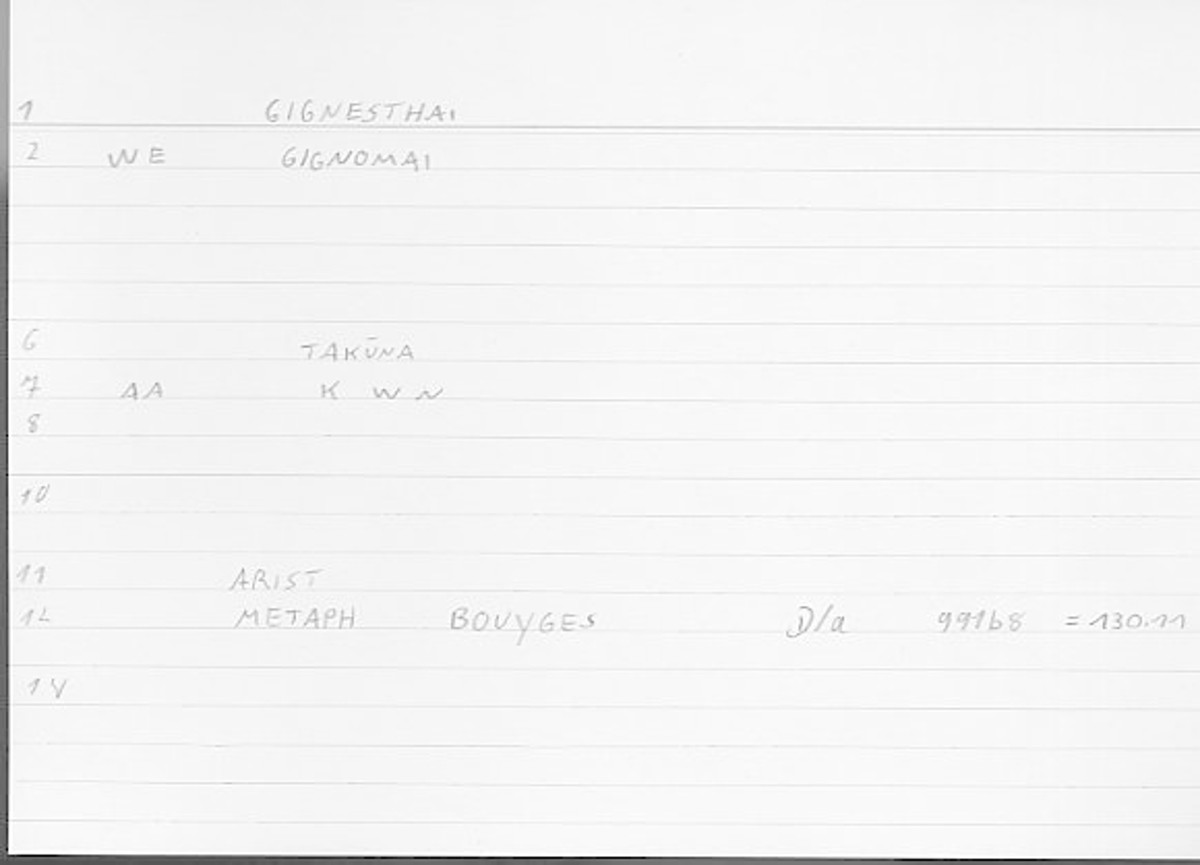 1 GIGNESTHAI
2 WE GIGNOMAI
6 TAKŪNA
7 AA K W N
8
10
11 ARIST
12 METAPH BOUYGES D/a 991b8 = 130.11
1V